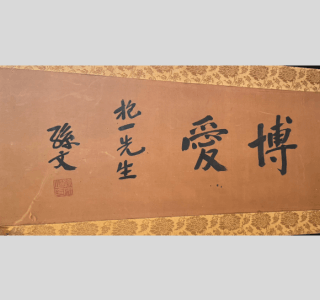 博愛
抱一先生
孫文